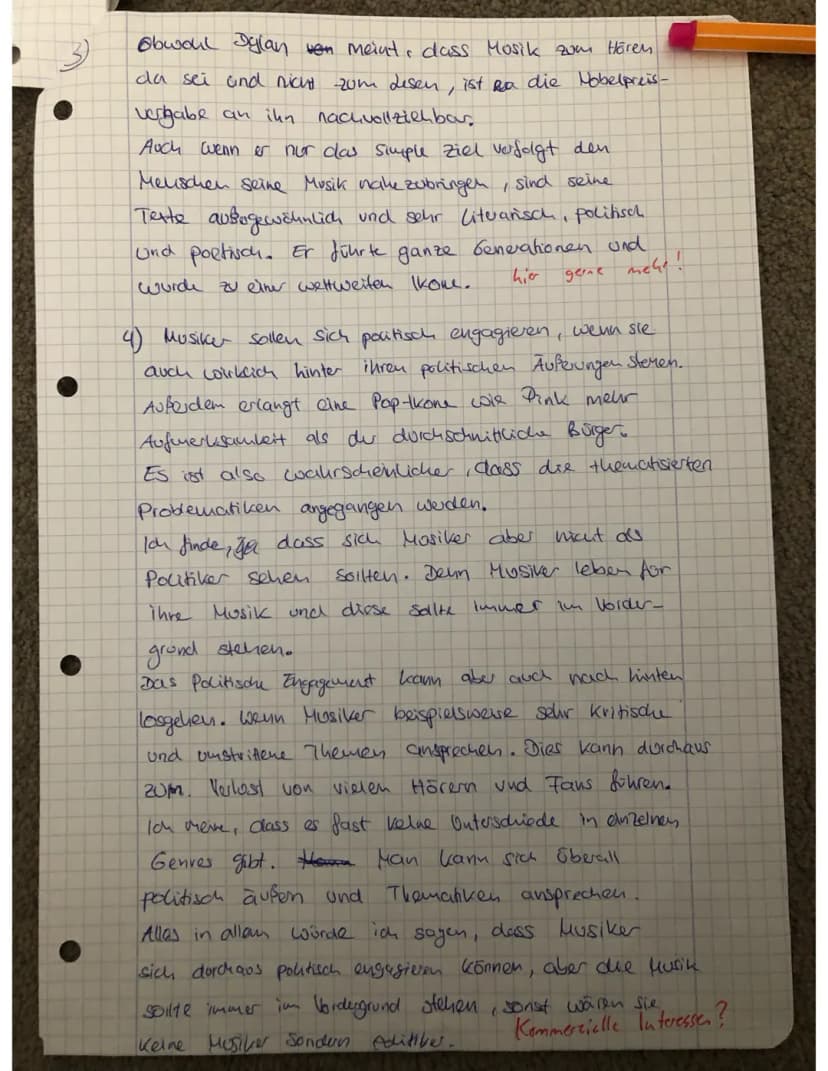 3) Obwohl Dylan meint, dass Musik zum Hören
da sei und nicht zum Lesen, ist die Nobelpreis-
vergabe an ihn nachvollziehbar.
Auch wenn er nur das simple Ziel verfolgt den
Menschen seine Musik nahezubringen, sind seine
Texte außagewöhnlich und sehr literarisch, politisch
und poetisch. Er führte ganze Generationen und
wurde zu einer weltweiten Ikone.
hier gerne mehr!
4) Musiker sollen sich politisch engagieren, wenn sie
auch wirklich hinter ihren politischen Äußerungen stehen.
Außerdem erlangt eine Pop-Ikone wie Pink mehr
Aufmerksamkeit als der durchschnittliche Bürger.
Es ist also wahrscheinlicher, dass die thematisierten
Problematiken angegangen werden.
Ich finde, dass sich Musiker aber nicht als
Politiker sehen sollten. Denn Musiker leben für
ihre Musik und diese sollte immer im Vorder-
grund stehen.
Das Politische Engagement kann aber auch nach hinten
losgehen. Wenn Musiker beispielsweise sehr kritische
und umstrittene Themen ansprechen. Dies kann durchaus
zum Verlust von vielen Hörern und Fans führen.
Ich meine, dass es fast keine Unterschiede in einzelnen
Genres gibt. Man kann sich überall
politisch äußern und Thematiken ansprechen.
Alles in allem würde ich sagen, dass Musiker
sich durchaus politisch engagieren können, aber die Musik
sollte immer im Vordergrund stehen, sonst wären sie
Kommerzielle Interessen?
keine Musiker sondern Politiker.